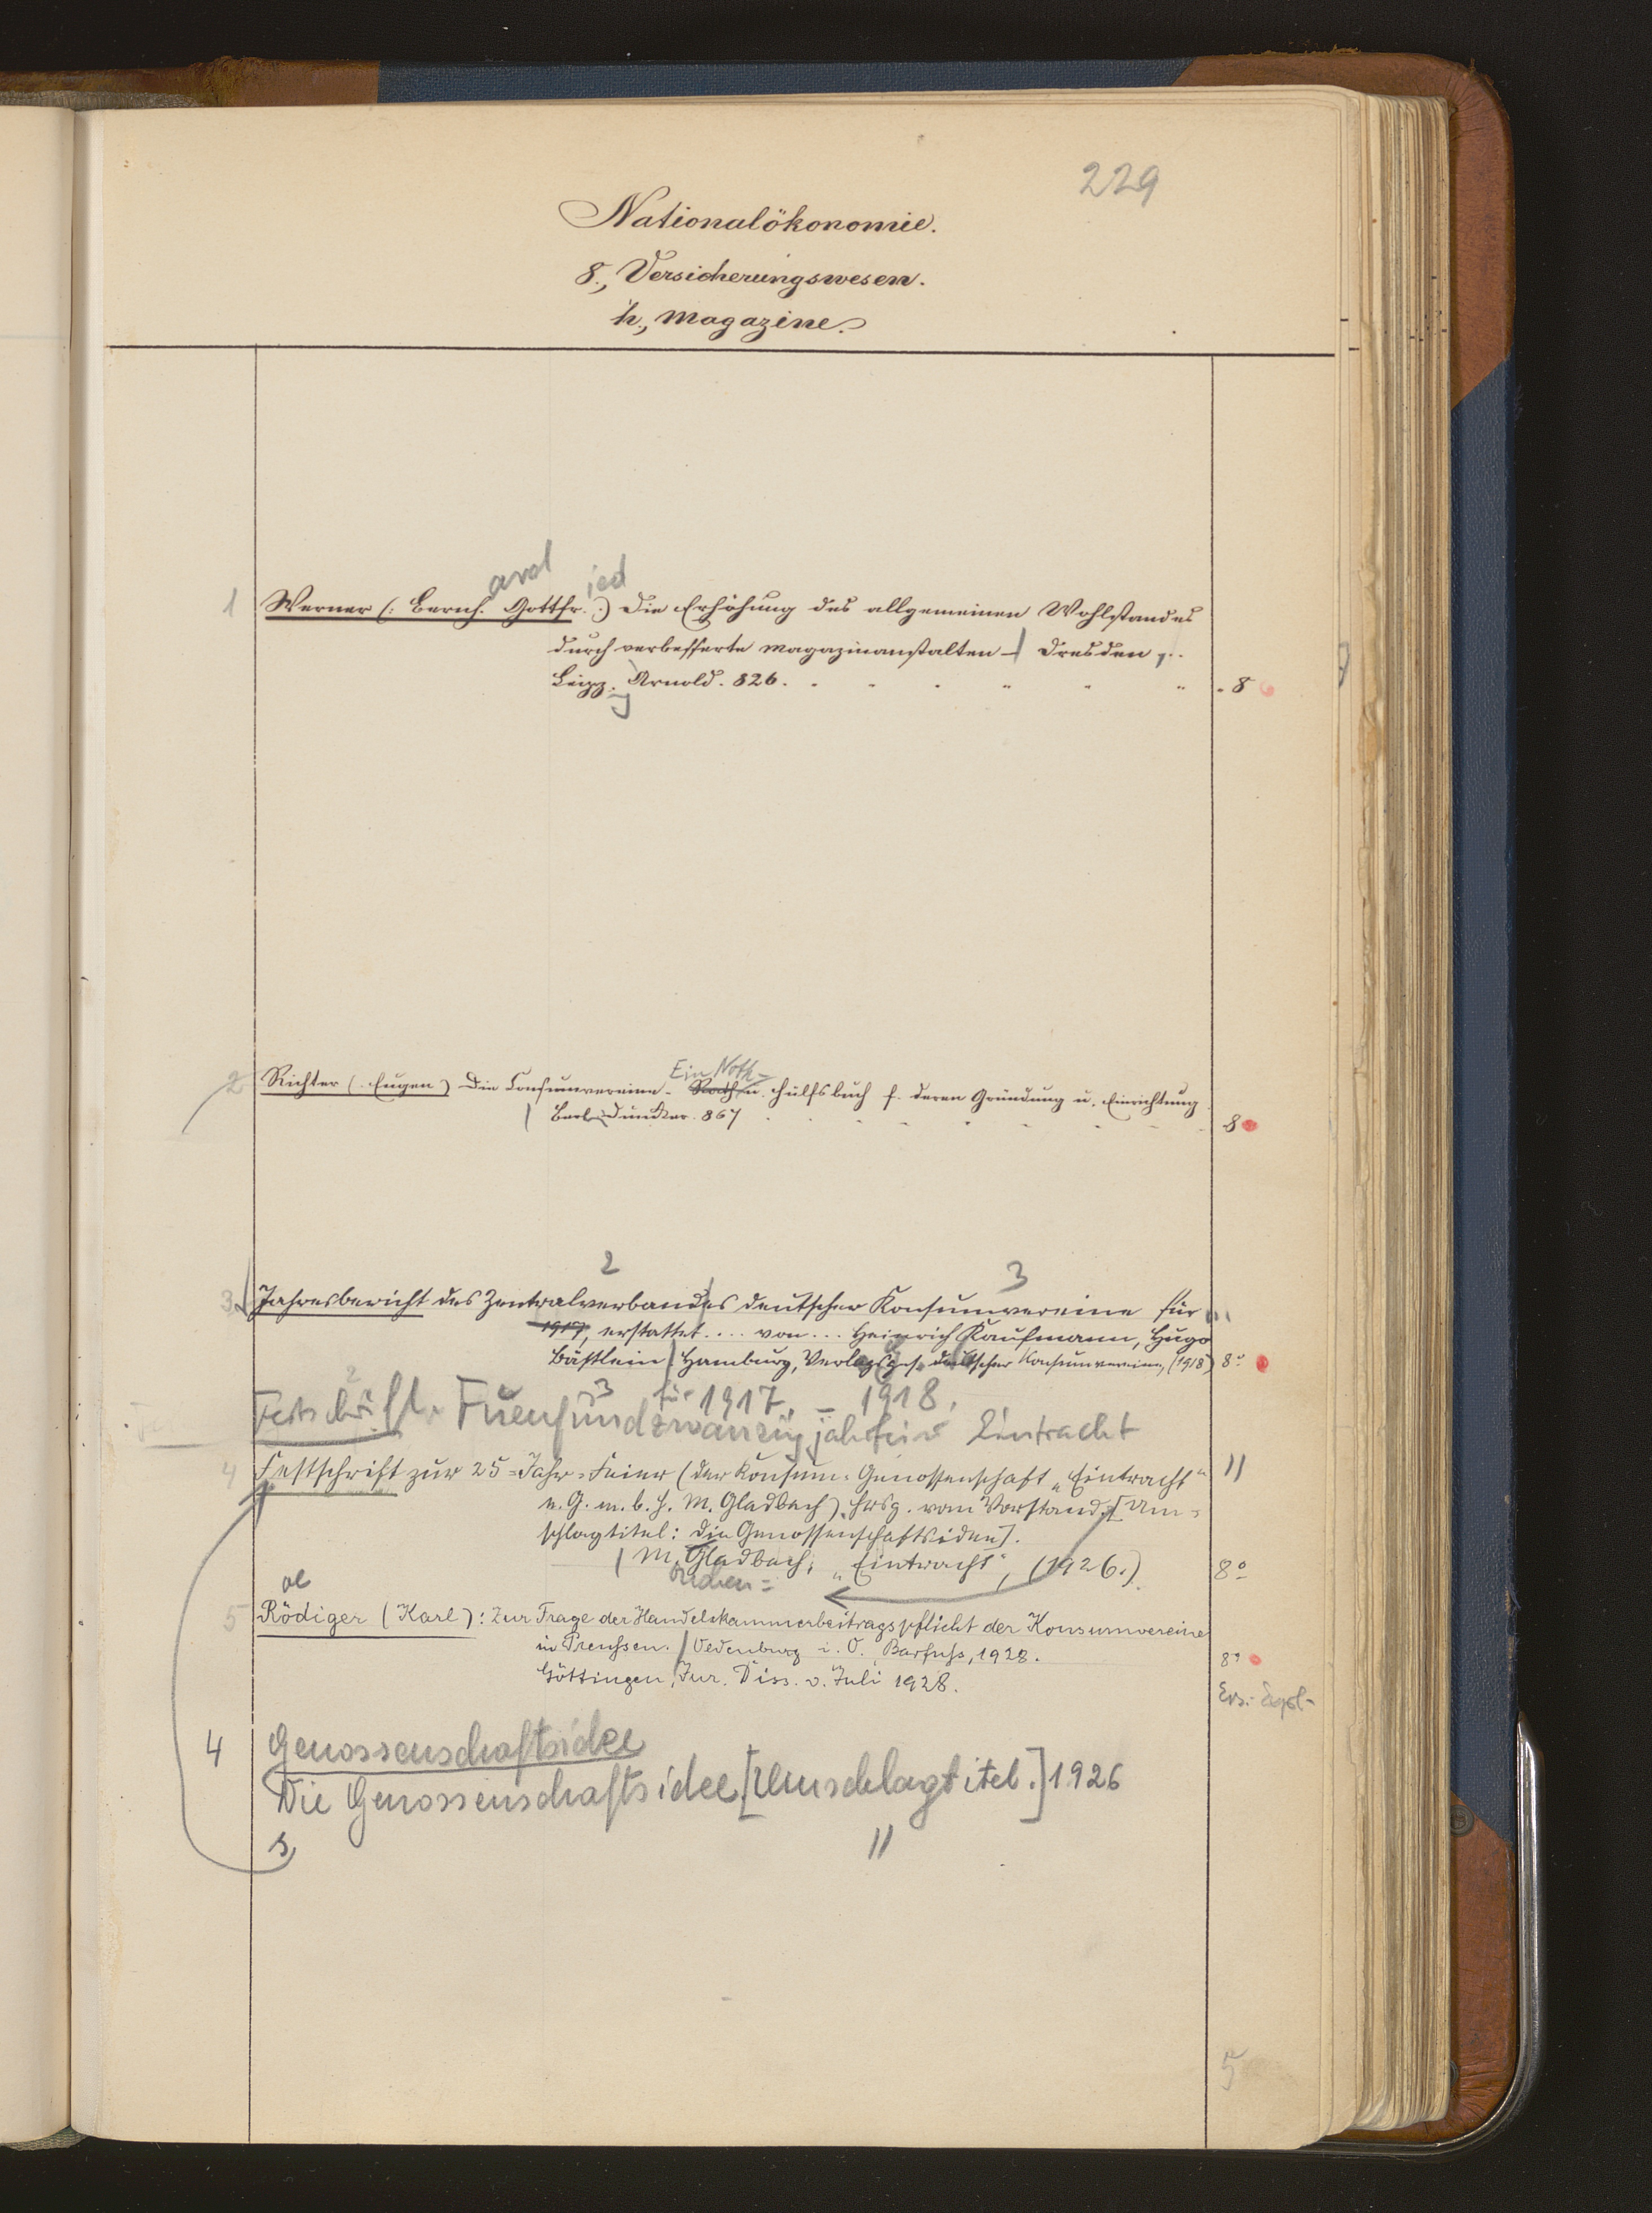 229
Nationalökonomie.
8., Versicherungswesen.
h., Magazine.
ard ied
1 Werner (: Bernh. Gottfr. :) Die Erhöhung des allgemeinen Wohlstandes
durch verbesserte Magazinanstalten - Dresden
Leipz. Arnold. 826. 8
Ein Noth-
2 Richter (Eugen) Die Consumvereine - Noth u. Hülfsbuch f. deren Gründung u. Einrichtung
Berl. Duncker. 867 8
2 3
3 Jahresbericht des Zentralverbandes deutscher Konsumvereine für ...
1917, erstattet .... von ... Heinrich Kaufmann, Hugo
Bästlein Hamburg, Verlagsges. deutscher Konsumvereine, (1918) 8°
2 3 für 1917. - 1918.
Festschrift Fuenfundzwanzigjahrfeier Eintracht
4 Festschrift zur 25=Jahr=Feier (der Konsum=Genossenschaft „Eintracht“ 11
e. G. m. b. H. M. Gladbach) Hrsg. vom Vorstand. [Um=
schlagtitel: Die Genossenschaftsidee].
M. Gladbach, „Eintracht“, (1926.) 8°
oe
5 Rödiger (Karl): Zur Frage der Handelskammerbeitragspflicht der Konsumvereine
in Preußen. / Vedenburg i. O. Barfuß, 1928. 8°
Göttingen, Jur. Diss. v. Juli 1928.
4 Genossenschaftsidee
Die Genossenschaftsidee. [Umschlagtitel.] 1926
s 11
5